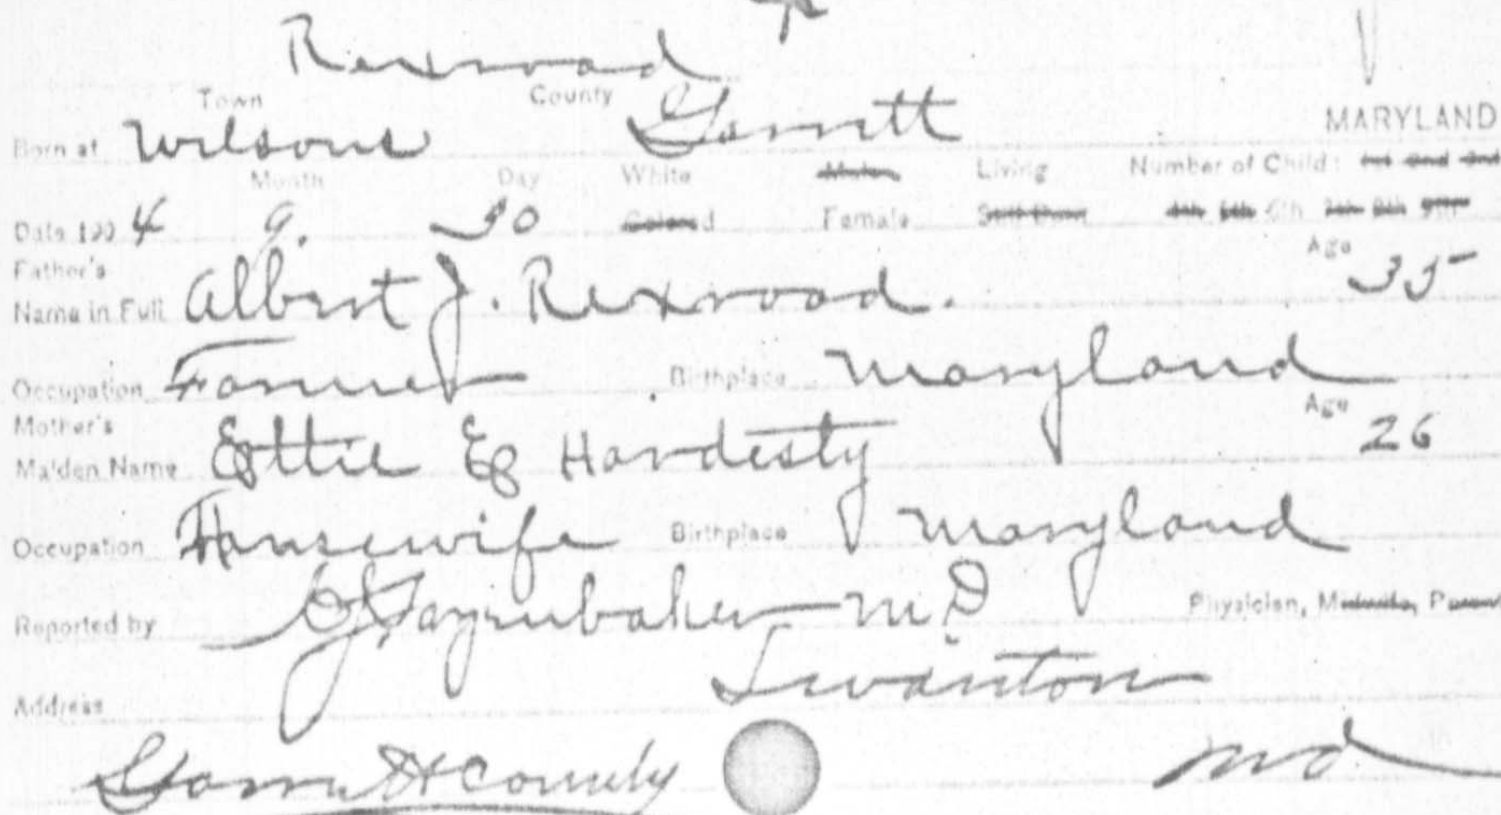 Rexroad
Town County
Born at Wilsons Garrett MARYLAND
Month Day White Male Living Number of Child: 1st 2nd 3rd
Date 190 4 9. 30 Colored Female Still Born 4th 5th 6th 7th 8th 9th
Father's Age
Name in Full Albert J. Rexroad. 35
Occupation Farmer Birthplace Maryland
Mother's Age
Maiden Name Ettie E Hardesty 26
Occupation Housewife Birthplace Maryland
Reported by M D Physician, Midwife, Parent
Swanton
Address
Garrett County Md